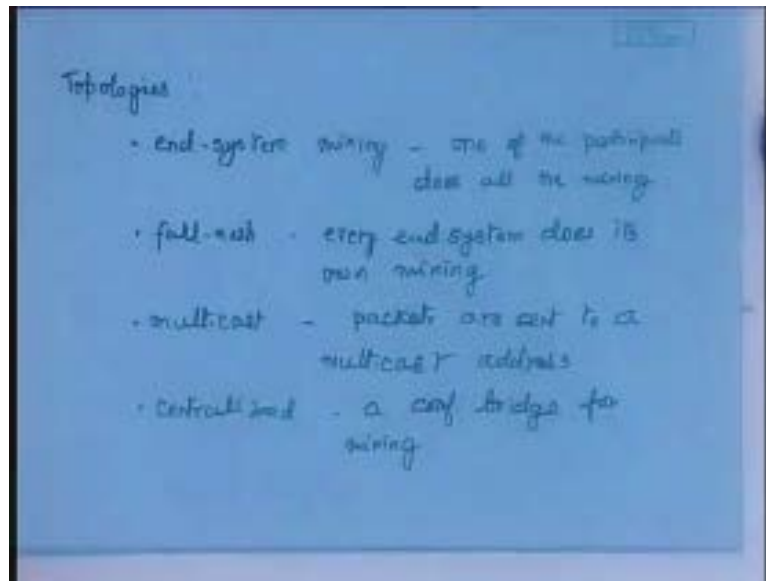 Topologies
• end-system mixing - one of the participants
does all the mixing
• full-mesh - every end system does its
own mixing
• multicast - packets are sent to a
multicast address
• centralized - a conf bridge for
mixing